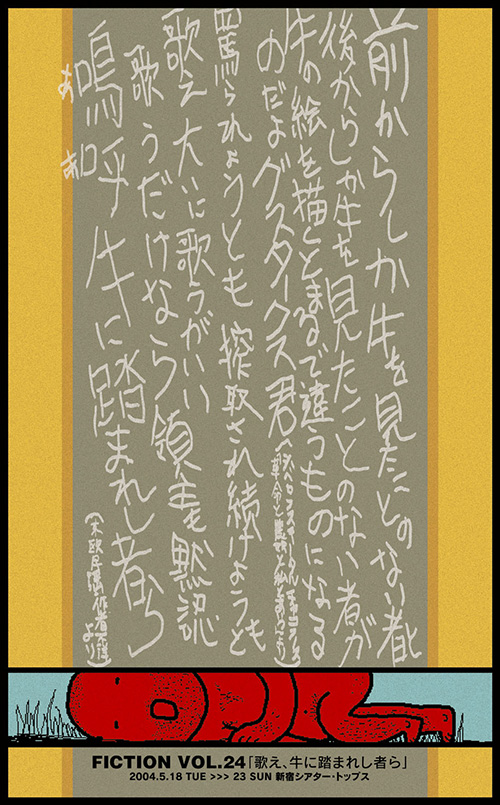 前からしか牛を見たことのない者と
後からしか牛を見たことのない者が
牛の絵を描くとまるで違うものになる
のだよグスタークス君
罵られようとも 搾取され続けようとも
歌え 大いに歌うがいい 領主も黙認
歌うだけなら
嗚呼 牛に踏まれし者ら
ああ
(東欧民謡 作者不詳より)
FICTION VOL.24「歌え、牛に踏まれし者ら」
2004.5.18 TUE >>> 23 SUN 新宿シアター・トップス